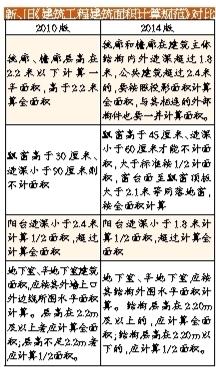 新、旧《建筑工程建筑面积计算规范》对比
2010版
2014版
挑廊、檐廊层高在
2.2米以下计算一
半面积，高于2.2米
算全面积
挑廊和檐廊在建筑主体
结构内外进深超过1.8
米，公共建筑超过2.4米
的，要按照投影面积计算
全面积，与其相连的外部
构件也要一并计算面积。
飘窗高于30厘米、
进深小于90厘米则
不计面积
飘窗高于45厘米、进深
小于60厘米才能不计面
积，大于标准按1/2计面
积，窗台面至飘窗顶板
大于2.1米等同落地窗，
按全面积计算
阳台进深小于2.4米
计算1/2面积，超过
计算全面积
阳台进深小于1.8米计
算1/2面积，超过计算全
面积
地下室、半地下室建筑
面积，应按其外墙上口
外边线所围水平面积
计算。层高在2.2m
及以上者应计算全面
积；层高不足2.2m者
应计算1/2面积。
地下室、半地下室，应按
其结构外围水平面积计
算。结构层高在2.20m
及以上的，应计算全面
积；结构层高在2.20m以
下的，应计算1/2面积。